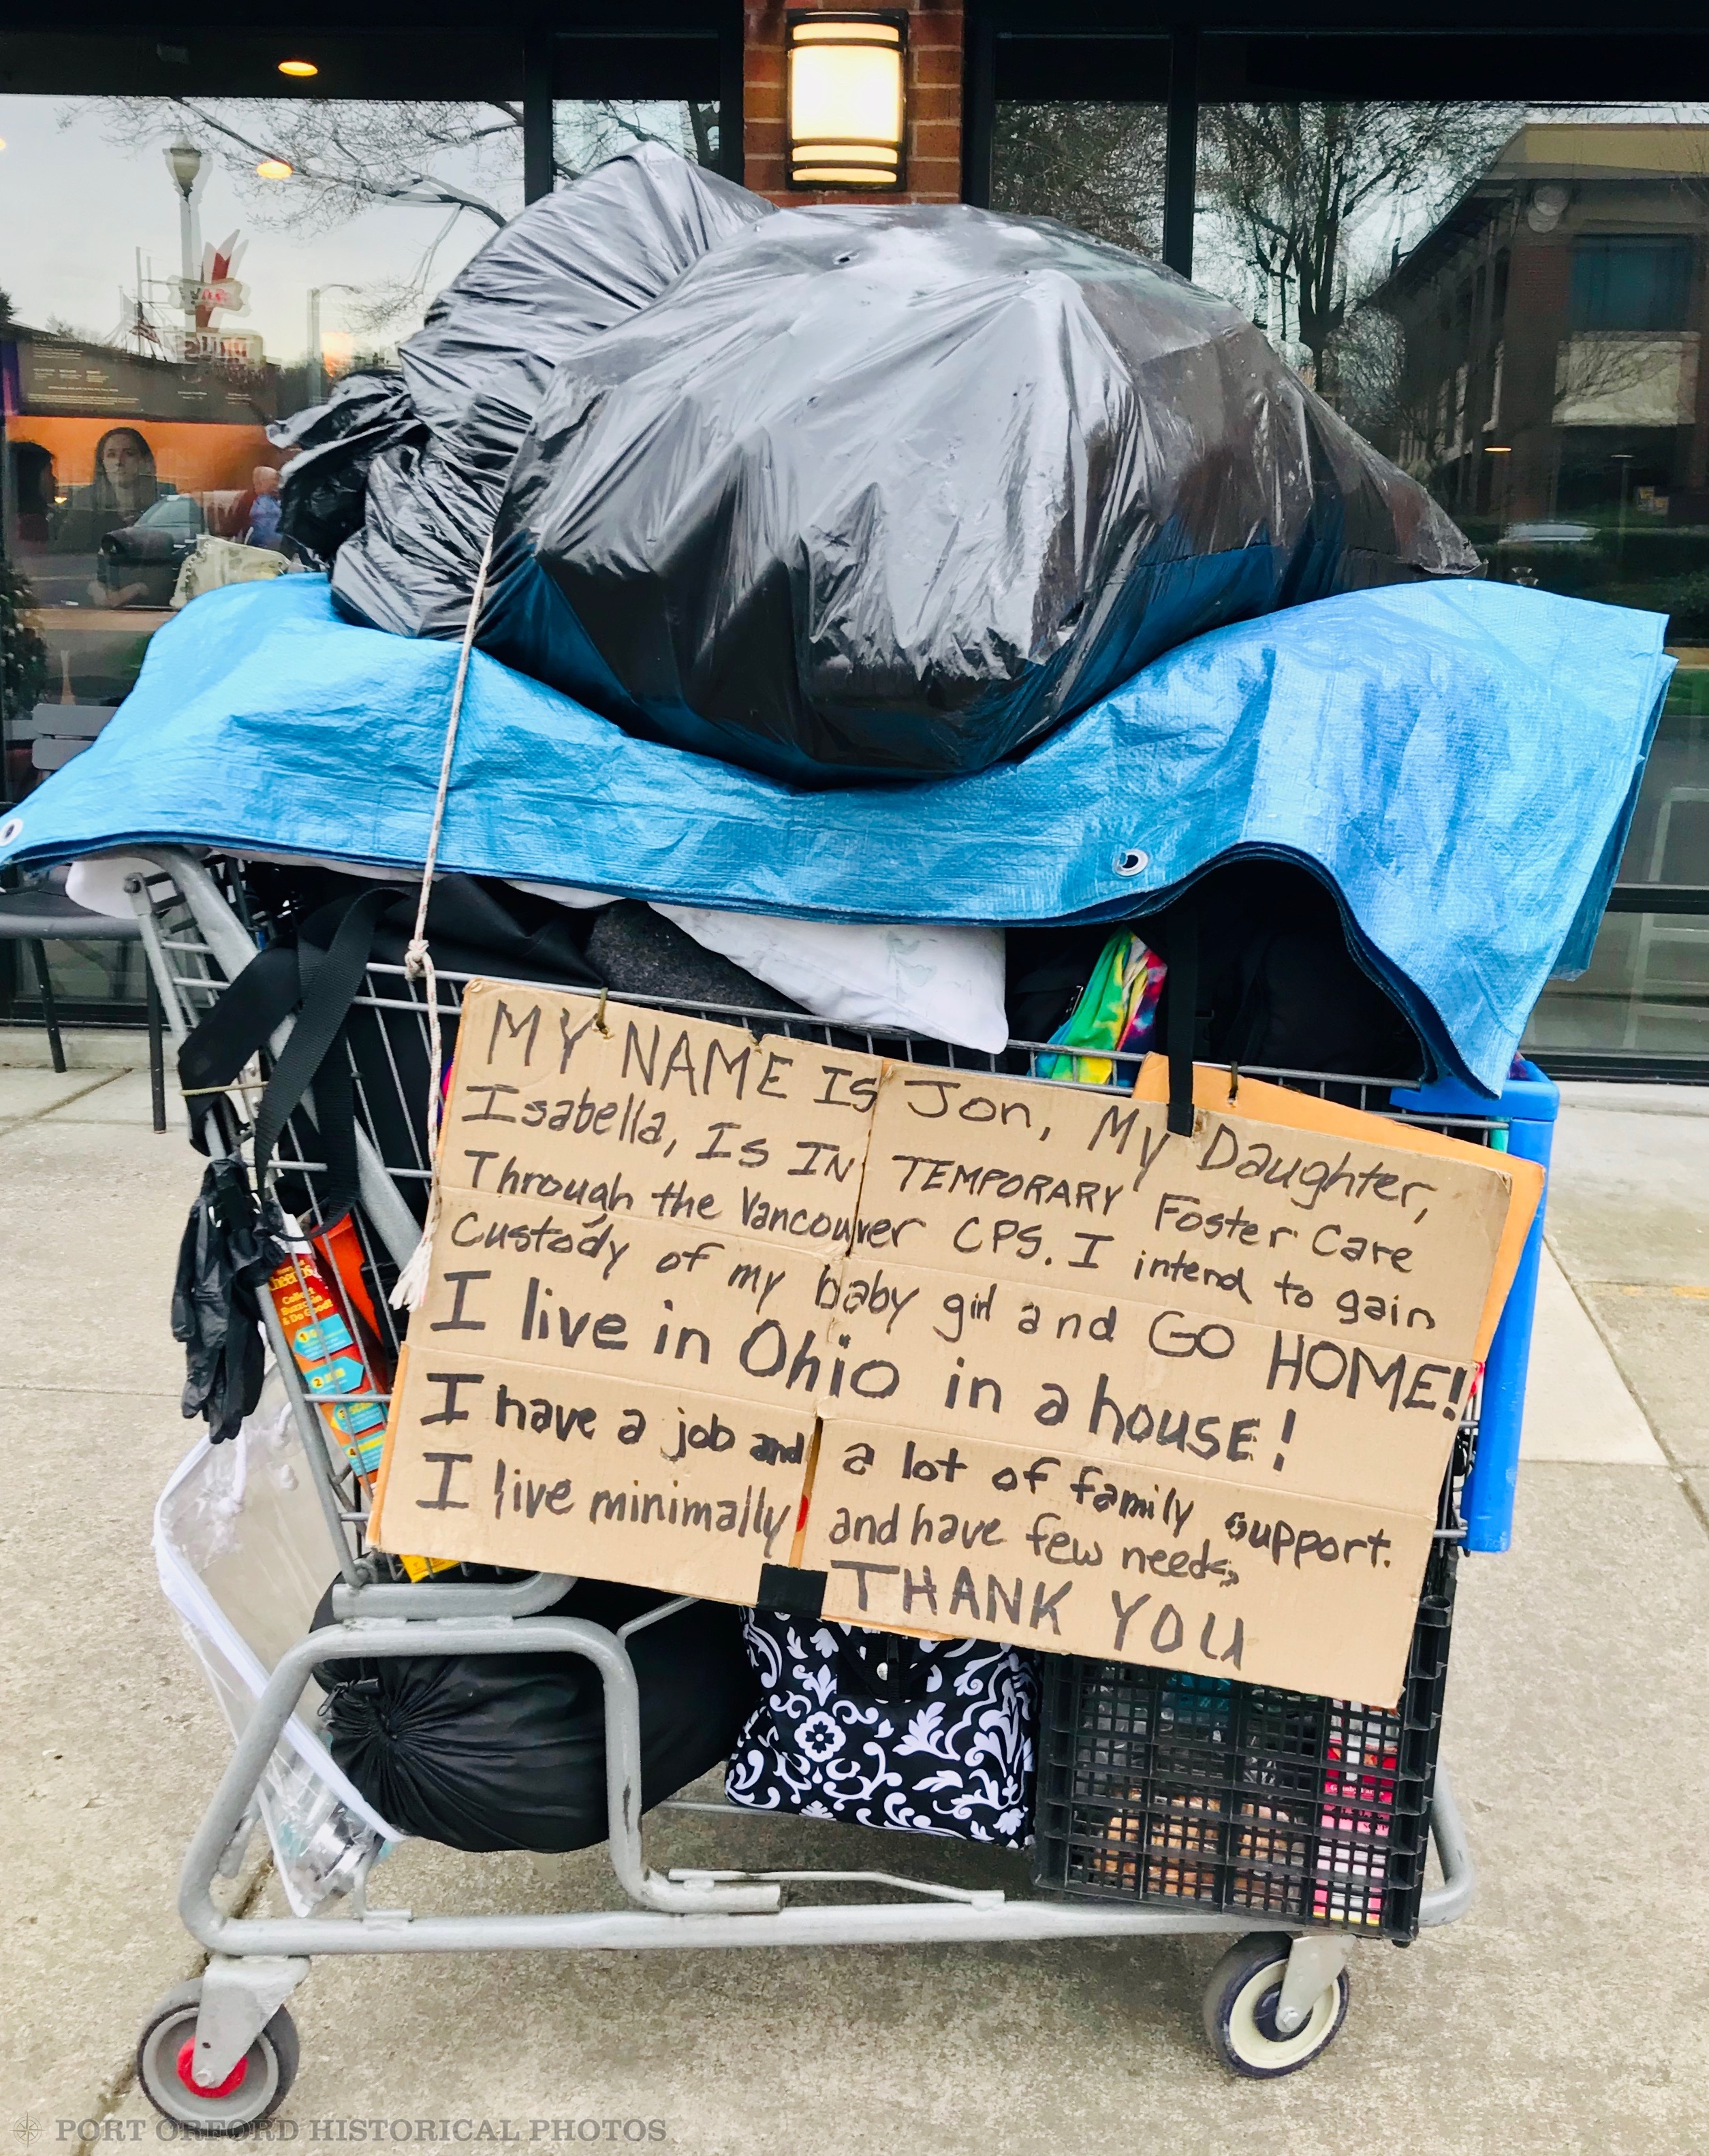 MY NAME IS Jon, My Daughter,
Isabella, IS IN TEMPORARY Foster Care
Through the Vancouver CPS. I intend to gain
Custody of my baby girl and GO HOME!
I live in Ohio in a house!
I have a job and a lot of family support.
I live minimally and have few needs,
THANK YOU
Cheerios
Collect
Buzzcoin
& Do Good!
PORT ORFORD HISTORICAL PHOTOS